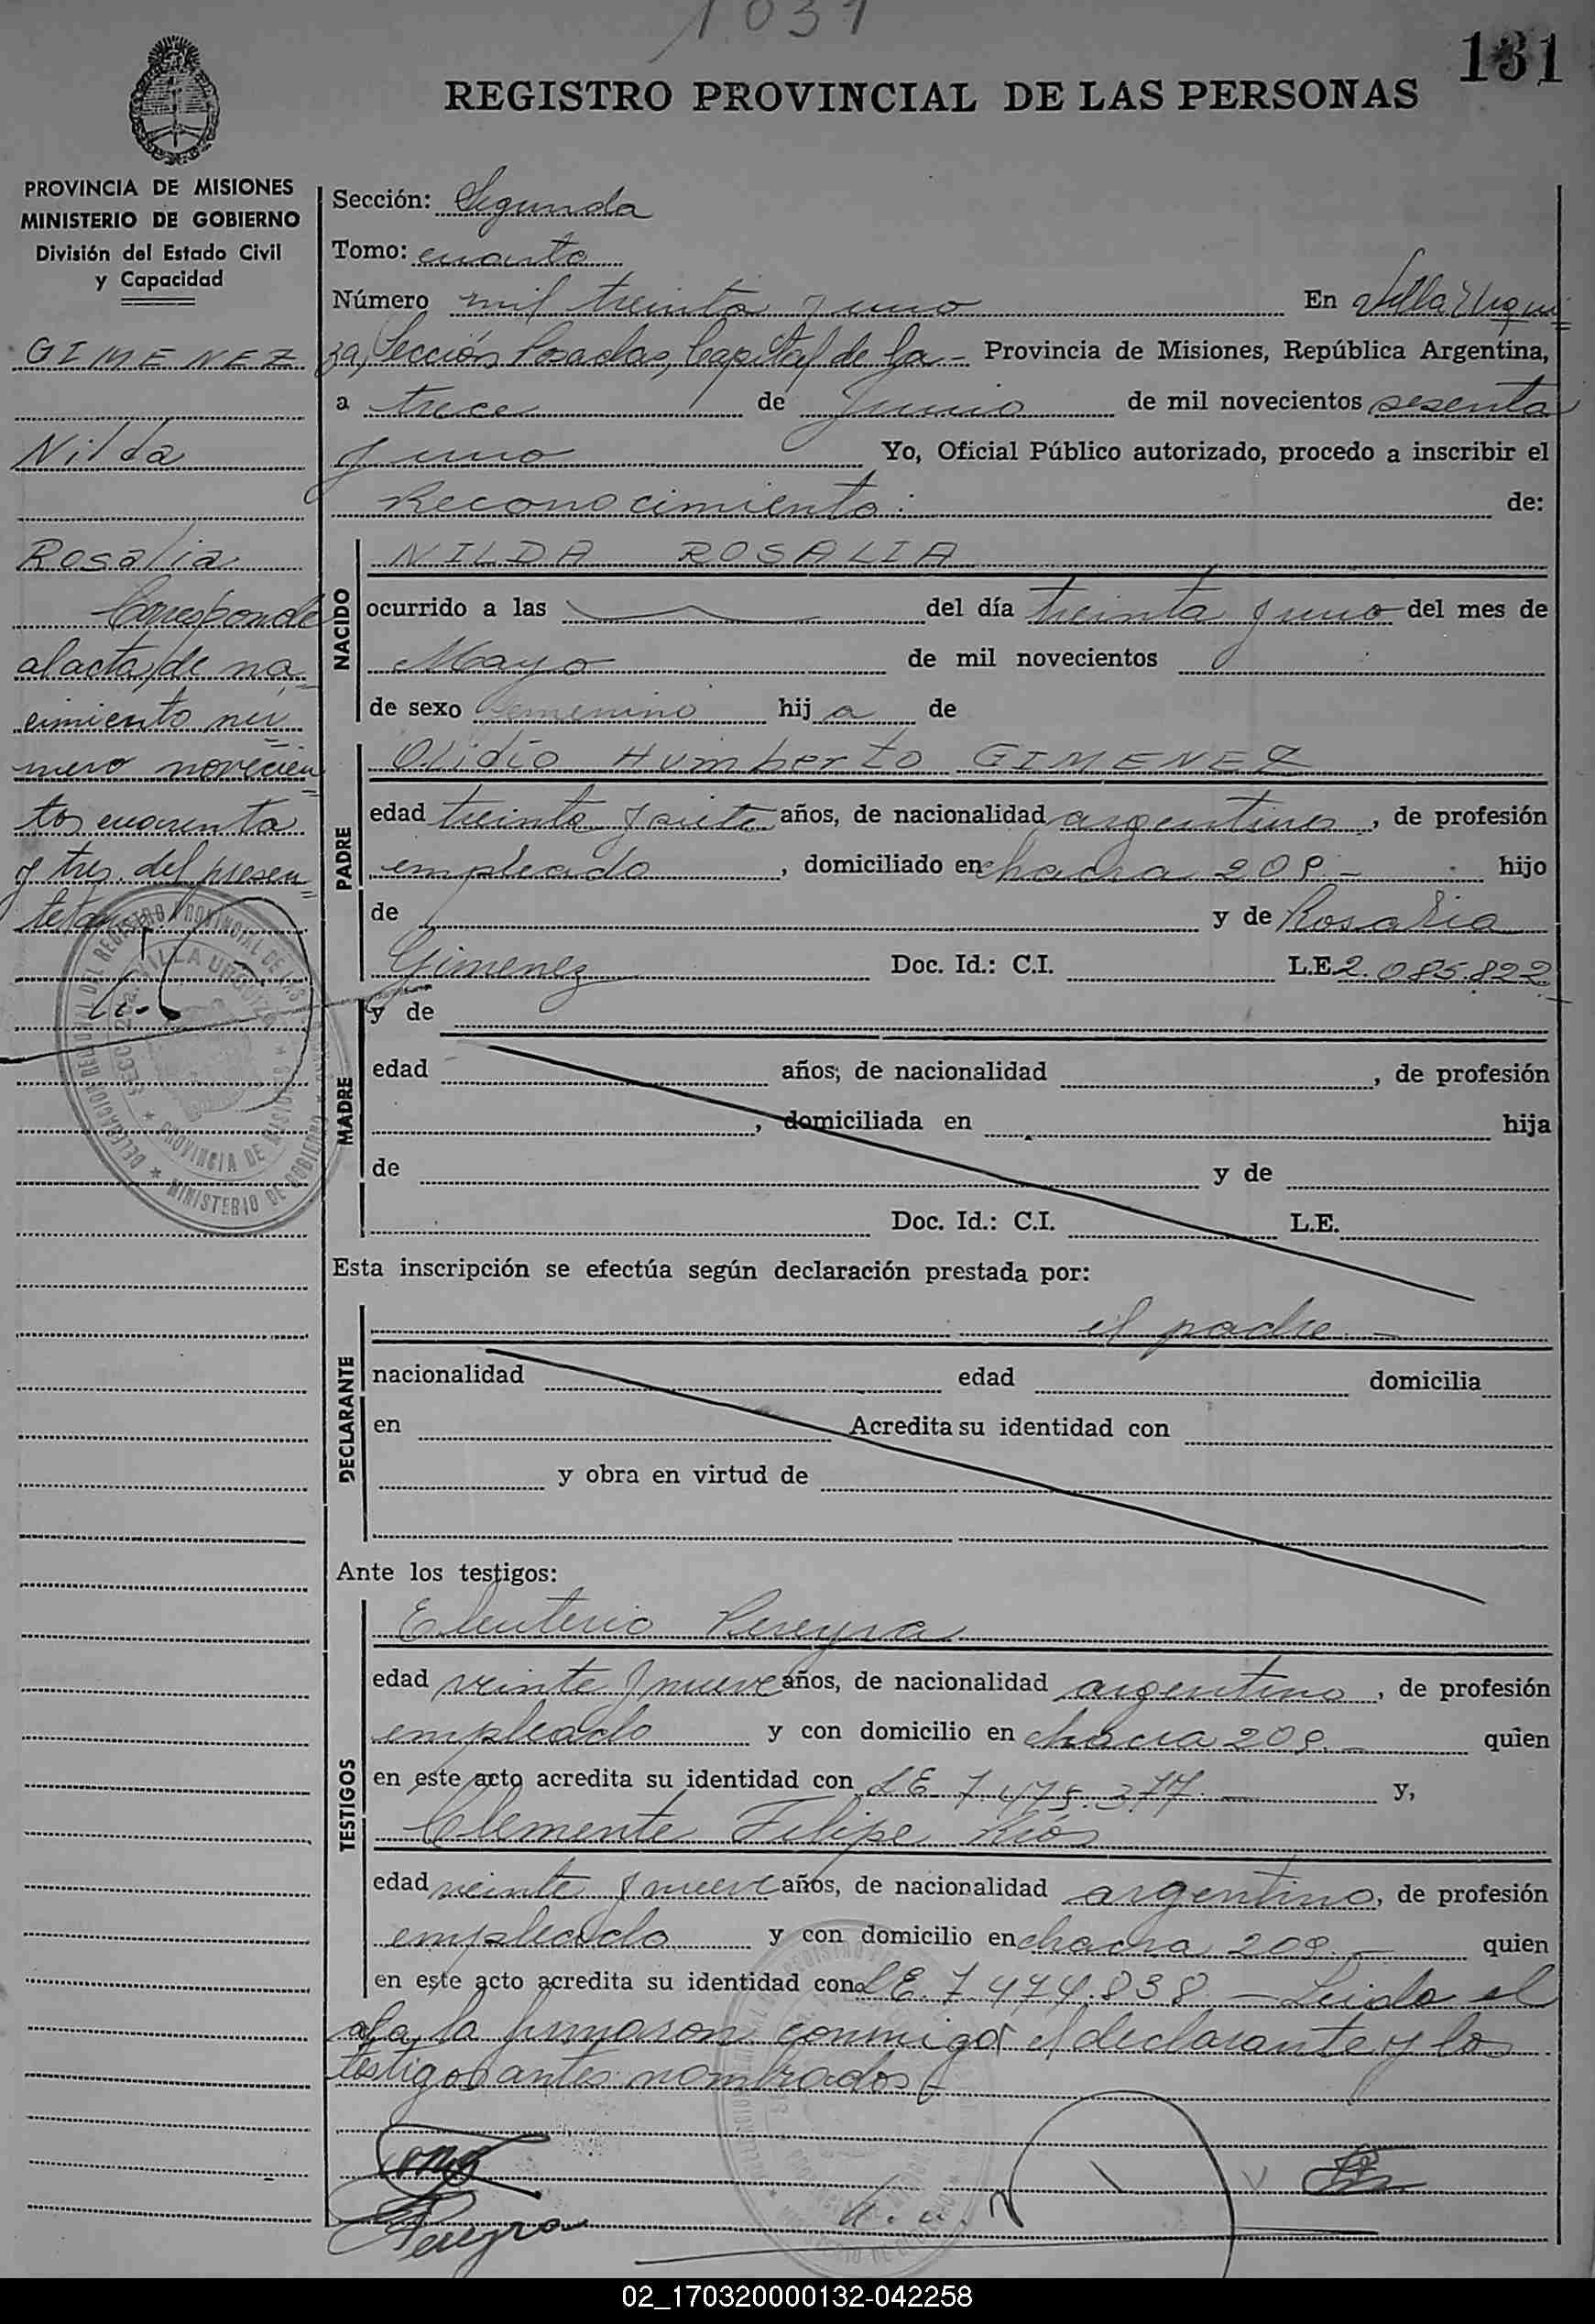 1031
131
REGISTRO PROVINCIAL DE LAS PERSONAS
PROVINCIA DE MISIONES
MINISTERIO DE GOBIERNO
División del Estado Civil
y Capacidad
GIMENEZ
Nilda
Rosalia
Corresponde
al acta de na
cimiento nú
mero novecien
tos cuarenta
y tres del presen
te
Sección: Segunda
Tomo: cuarto
Número mil treinta y uno En Villa Urqui
za, Sección Posadas, Capital de la - Provincia de Misiones, República Argentina,
a trece de Junio de mil novecientos sesenta
y uno Yo, Oficial Público autorizado, procedo a inscribir el
Reconocimiento: de:
NACIDO
NILDA ROSALIA
ocurrido a las del día treinta y uno del mes de
Mayo de mil novecientos
de sexo femenino hija de
PADRE
Olidio Humberto GIMENEZ
edad treinta y siete años, de nacionalidad argentino, de profesión
empleado, domiciliado en chacra 209.- hijo
de y de Rosalia
Gimenez Doc. Id.: C.I. L.E. 2.085.822
MADRE
y de
edad años, de nacionalidad , de profesión
, domiciliada en hija
de y de
Doc. Id.: C.I. L.E.
Esta inscripción se efectúa según declaración prestada por:
DECLARANTE
el padre.-
nacionalidad edad domicilia
en Acredita su identidad con
y obra en virtud de
Ante los testigos:
TESTIGOS
Eleuterio Pereyra
edad veinte y nueve años, de nacionalidad argentino, de profesión
empleado y con domicilio en chacra 209.- quien
en este acto acredita su identidad con L.E. 7.475.377.- y,
Clemente Filipe Ríos
edad veinte y nueve años, de nacionalidad argentino, de profesión
empleado y con domicilio en chacra 209.- quien
en este acto acredita su identidad con L.E. 7.474.838 - Leida el
acta, la firmaron conmigo el declarante y los
testigos antes nombrados.-
Pereyra
DELEGACION REGIONAL DEL REGISTRO PROVINCIAL DE LAS PERSONAS
VILLA URQUIZA
SECC. 2ª
PROVINCIA DE MISIONES
MINISTERIO DE GOBIERNO
02_170320000132-042258